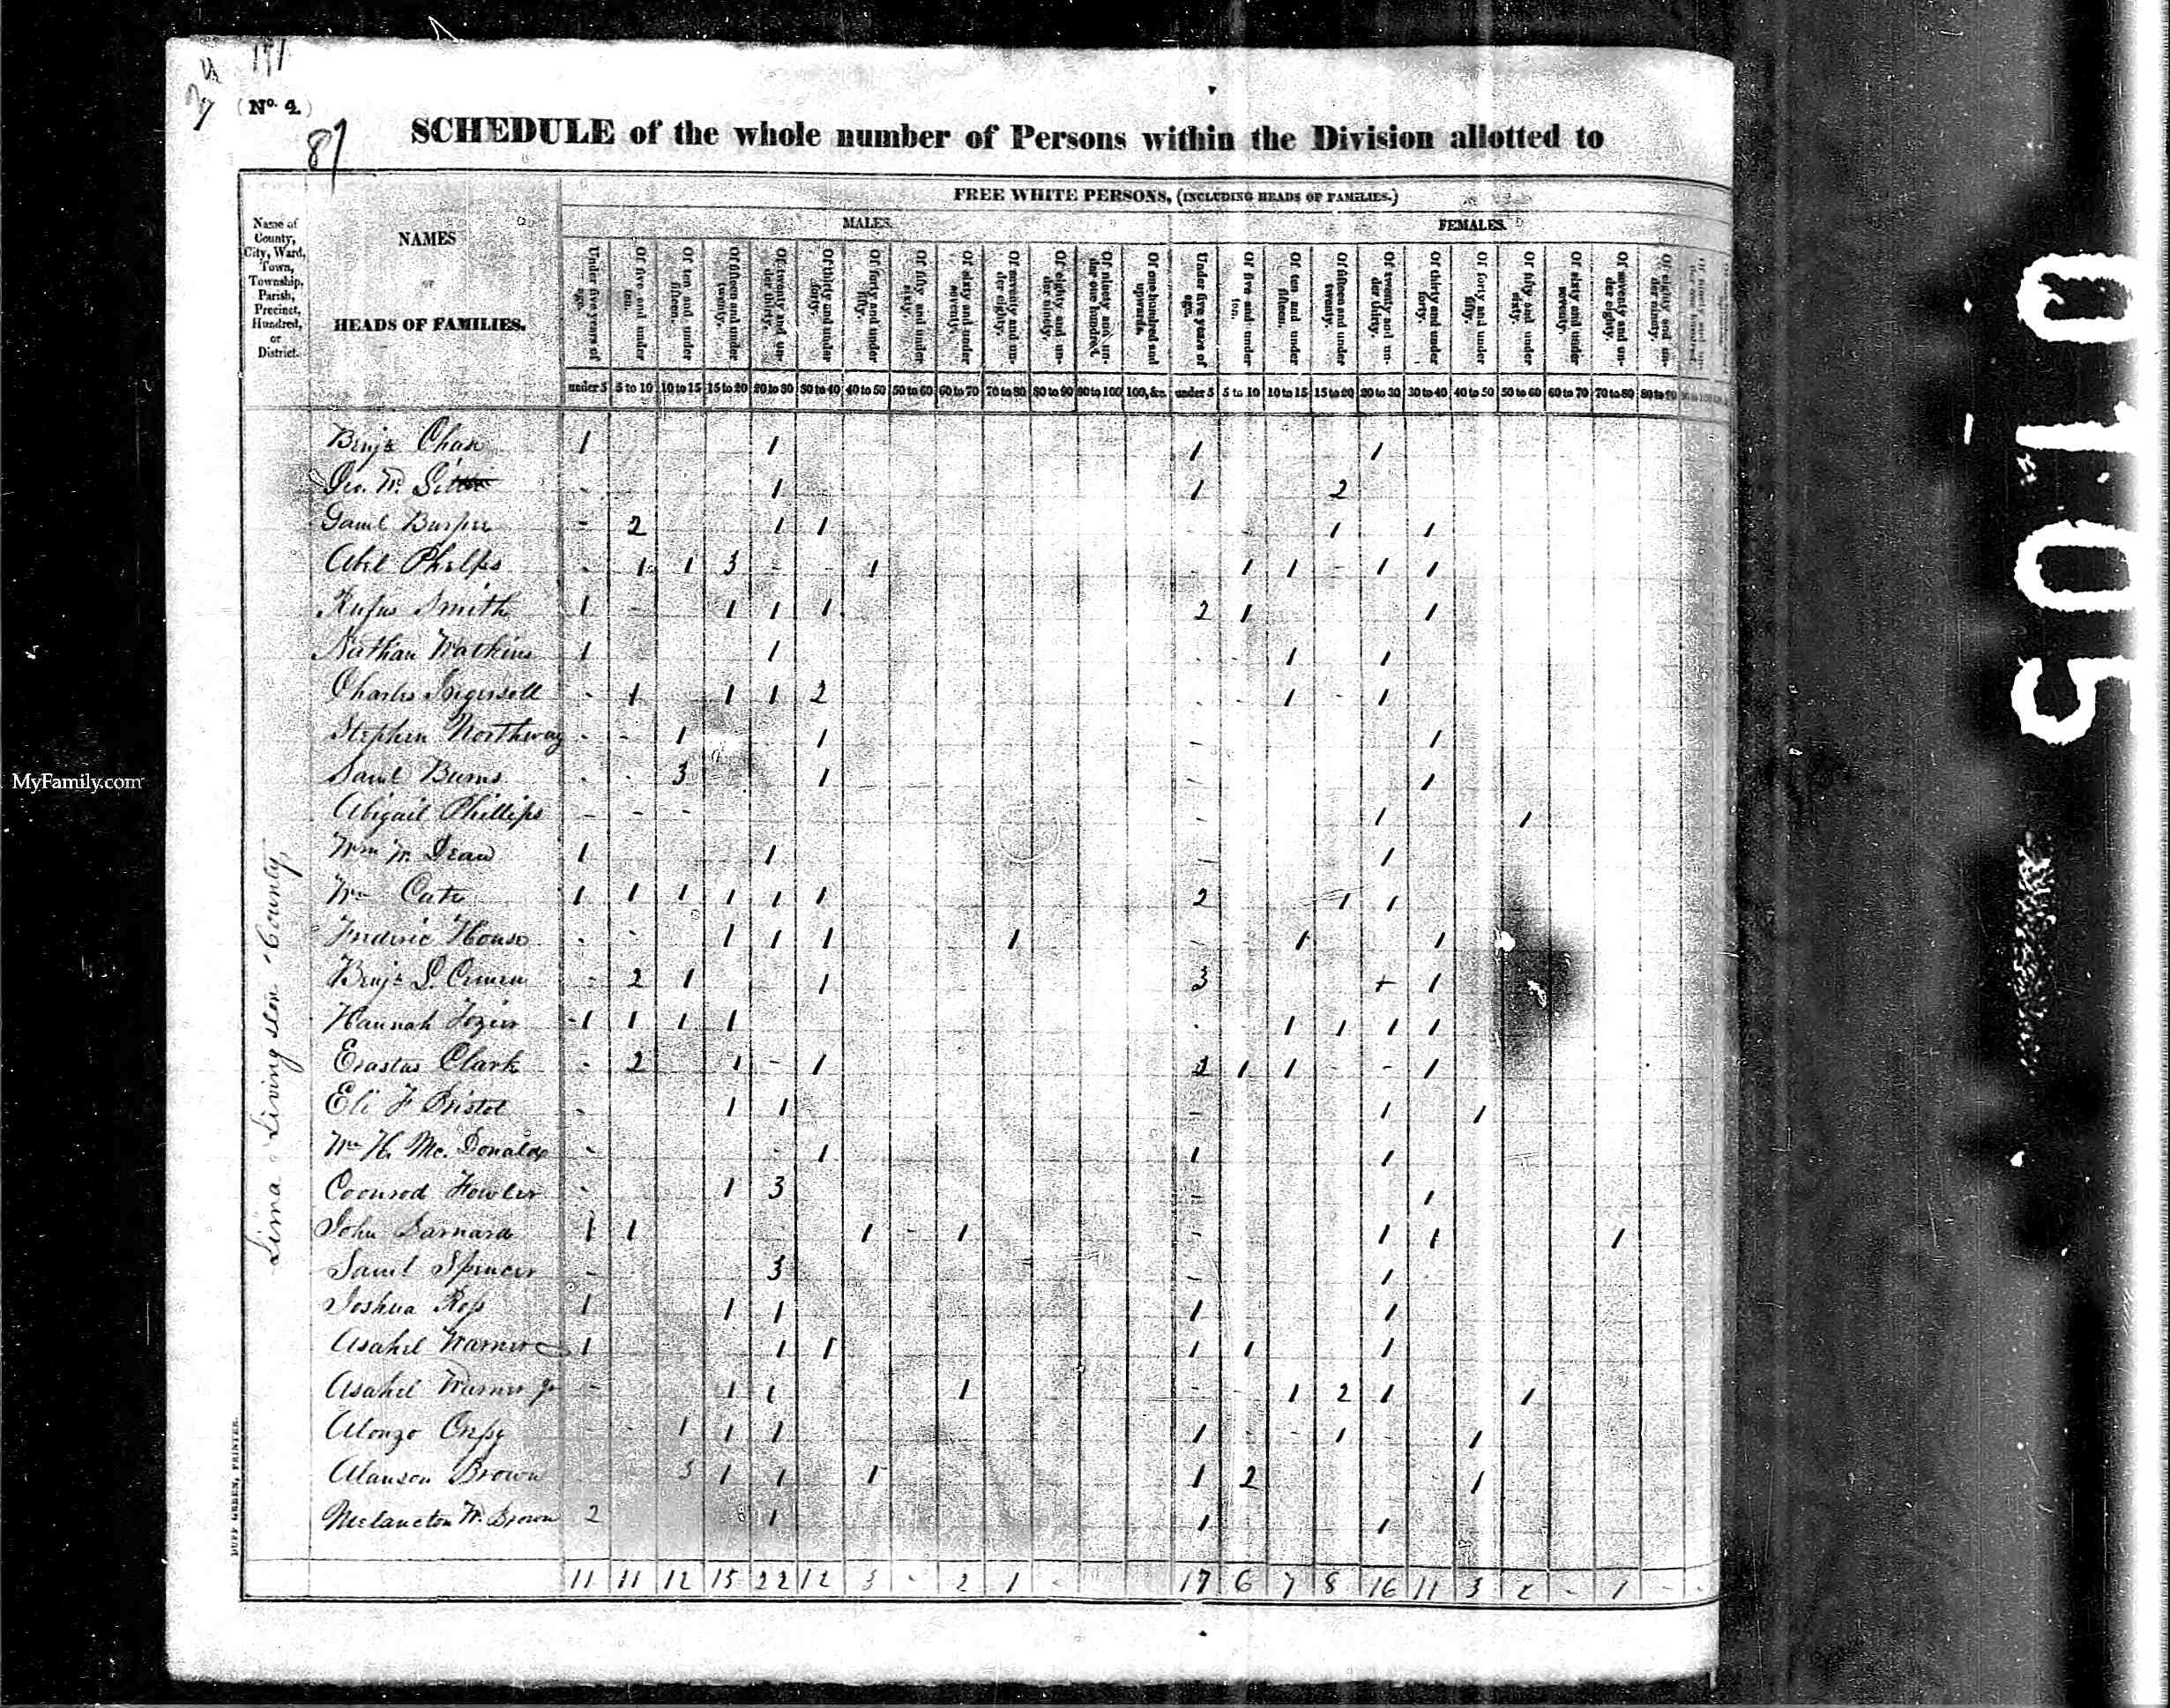 (No. 4.)
87
SCHEDULE of the whole number of Persons within the Division allotted to
FREE WHITE PERSONS, (INCLUDING HEADS OF FAMILIES.)
MALES.
FEMALES.
Name of County, City, Ward, Town, Township, Parish, Precinct, Hundred, or District.
NAMES
OF
HEADS OF FAMILIES.
Under five years of age.
Of five and under ten.
Of ten and under fifteen.
Of fifteen and under twenty.
Of twenty and under thirty.
Of thirty and under forty.
Of forty and under fifty.
Of fifty and under sixty.
Of sixty and under seventy.
Of seventy and under eighty.
Of eighty and under ninety.
Of ninety and under one hundred.
Of one hundred and upwards.
Under five years of age.
Of five and under ten.
Of ten and under fifteen.
Of fifteen and under twenty.
Of twenty and under thirty.
Of thirty and under forty.
Of forty and under fifty.
Of fifty and under sixty.
Of sixty and under seventy.
Of seventy and under eighty.
Of eighty and under ninety.
under 5 5 to 10 10 to 15 15 to 20 20 to 30 30 to 40 40 to 50 50 to 60 60 to 70 70 to 80 80 to 90 90 to 100 100, &c. under 5 5 to 10 10 to 15 15 to 20 20 to 30 30 to 40 40 to 50 50 to 60 60 to 70 70 to 80 80 to 90
Benja Chase 1 1 1 1
Geo. W. 1 1 2
Saml Burpee - 2 1 1 1 1
Abel Phelps - 1 1 3 - - 1 - 1 1 - 1 1
Rufus Smith 1 - 1 1 1 2 1 1
Nathan Watkins 1 1 1 1
Charles Ingersoll - 1 1 1 2 1 - 1
Stephen Northway - - 1 1 - 1
Saml Burns - - 3 1 1
Abigail Phillips - - - - 1 1
Wm W. Dean 1 1 1
Wm Cate 1 1 1 1 1 1 2 1 1
Frederic House - - 1 1 1 1 1 1
Benja 2 1 1 3 + 1
Hannah Tozier 1 1 1 1 1 1 1 1
Erastus Clark - 2 1 - 1 2 1 1 - 1
Eli F Bristol - 1 1 - 1 1
Wm H. Mc. Donald - 1 1 1
Coonrod Fowler - 1 3 - 1
John Barnard 1 1 1 - 1 - 1 1 1
Saml Spencer - 3 - 1
Joshua Ross 1 1 1 1 1
Asahel Warner 1 1 1 1 1 1
Asahel Warner Jr - 1 1 1 - 1 2 1 1
Alonzo 1 1 1 1 - 1 1
Alanson Brown 3 1 1 1 1 2 1
Melancton W. Brown 2 1 1 1
Lima Livingston County
11 11 12 15 22 12 3 - 2 1 - 17 6 7 8 16 11 3 2 - 1 - -
DUFF GREEN, PRINTER.
MyFamily.com
0105